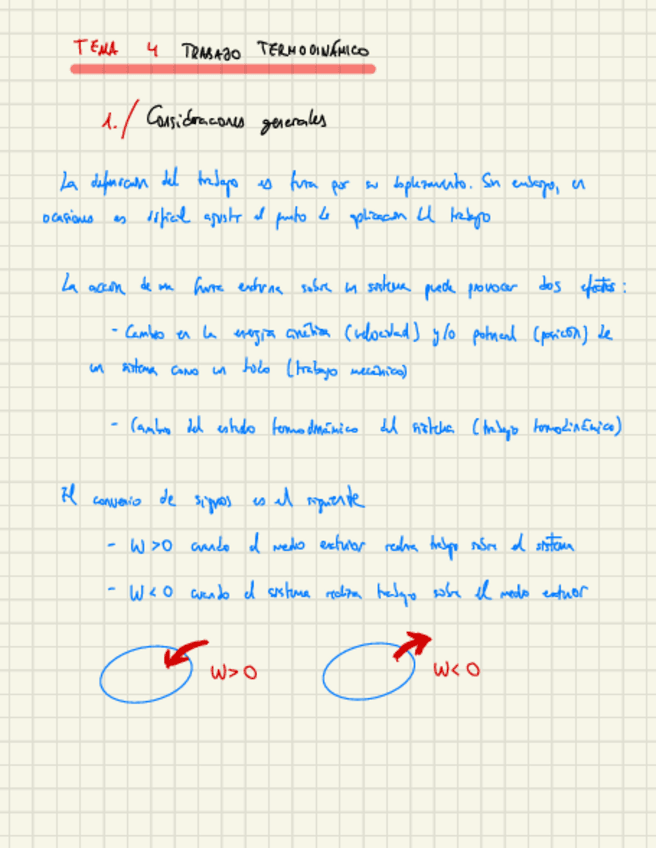 TEMA 4 TRABAJO TERMODINÁMICO
1./ Consideraciones generales
La definición del trabajo es fuerza por su desplazamiento. Sin embargo, en
ocasiones es difícil ajustar el punto de aplicación del trabajo
La acción de una fuerza externa sobre un sistema puede provocar dos efectos:
- Cambio en la energía cinética (velocidad) y/o potencial (posición) de
un sistema como un todo (trabajo mecánico)
- Cambio del estado termodinámico del sistema (trabajo termodinámico)
El convenio de signos es el siguiente
- W > 0 cuando el medio exterior realiza trabajo sobre el sistema
- W < 0 cuando el sistema realiza trabajo sobre el medio exterior
W > 0 W < 0